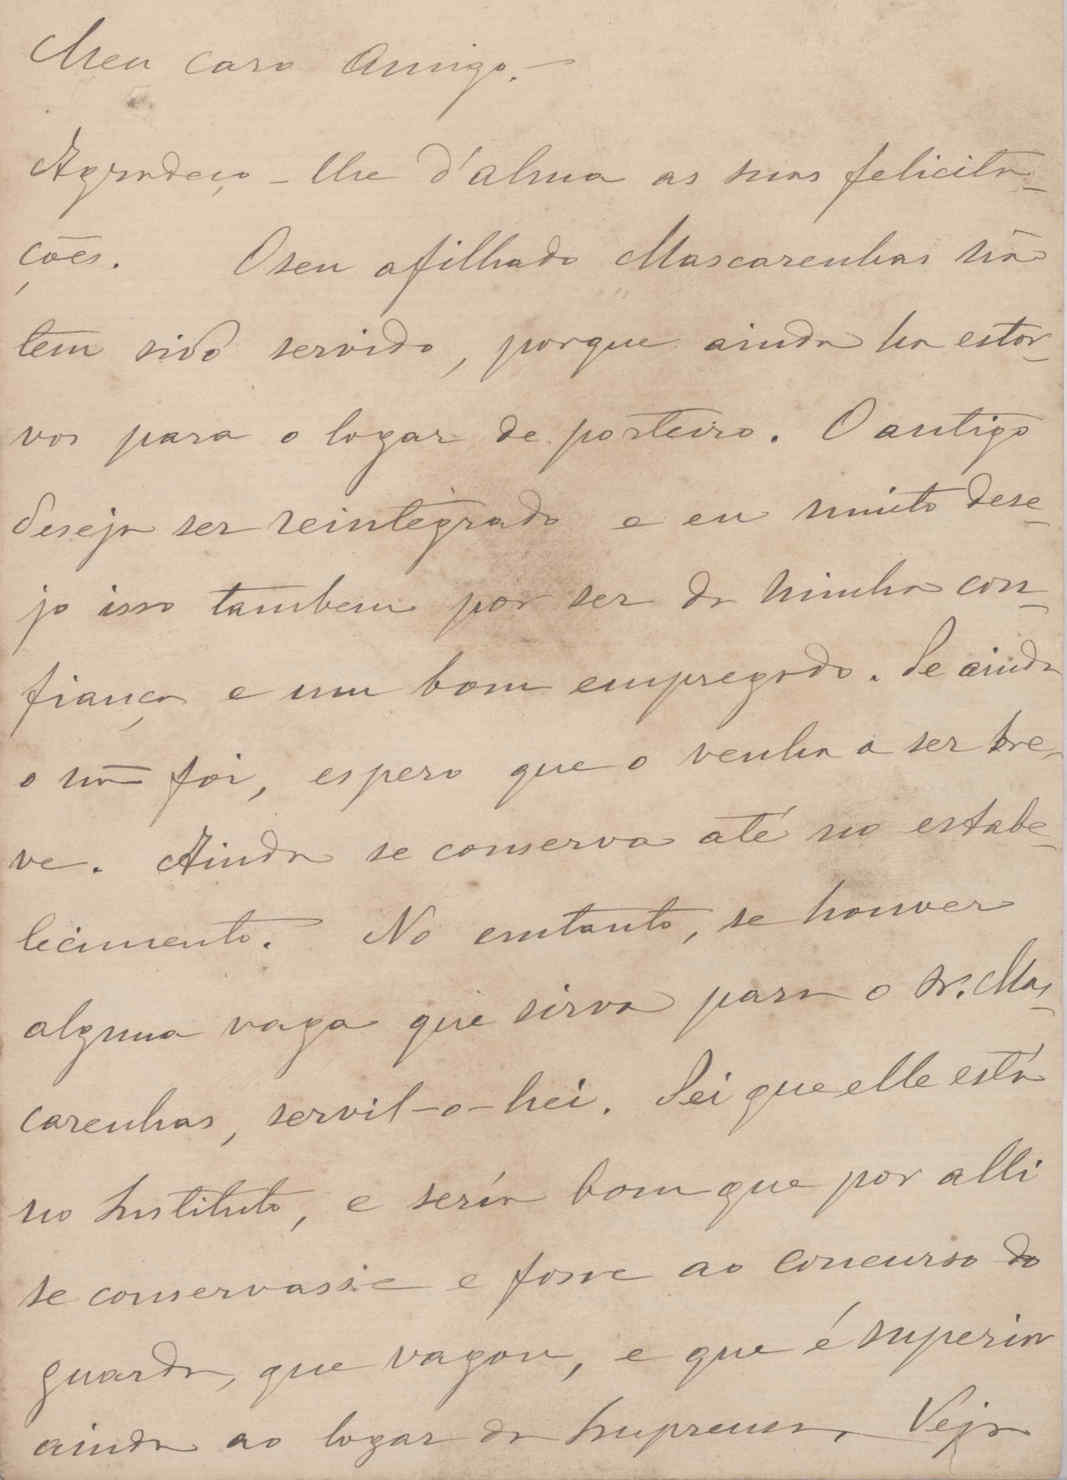 Meu caro Amigo. —
Agradeço-lhe d'alma as suas felicita-
ções. O seu afilhado Mascarenhas não
tem sido servido, porque ainda ha estor-
vos para o logar de porteiro. O antigo
deseja ser reintegrado e eu muito dese-
jo isso tambem por ser da minha con-
fiança e um bom empregado. Se ainda
o não foi, espero que o venha a ser bre-
ve. Ainda se conserva até no estabe-
lecimento. No emtanto, se houver
alguma vaga que sirva para o sr. Mas-
carenhas, servil-o-hei. Sei que elle está
no Instituto, e sería bom que por alli
se conservasse e fosse ao concurso do
guarda, que vagou, e que é superior
ainda ao logar da Imprensa. Veja